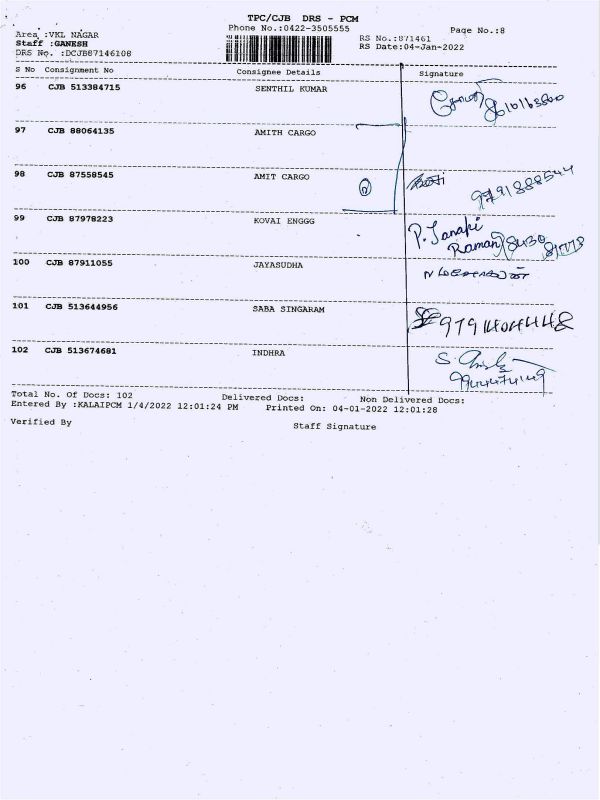 TPC/CJB DRS - PCM
Phone No.:0422-3505555 Page No.:8
Area :VKL NAGAR RS No.:871461
Staff :GANESH RS Date:04-Jan-2022
DRS No. :DCJB87146108
S No Consignment No Consignee Details Signature
96 CJB 513384715 SENTHIL KUMAR
97 CJB 88064135 AMITH CARGO
98 CJB 87558545 AMIT CARGO 9791888544
99 CJB 87978223 KOVAI ENGGG P. Janaki
Raman
100 CJB 87911055 JAYASUDHA
101 CJB 513644956 SABA SINGARAM
102 CJB 513674681 INDHRA
9944474149
Total No. Of Docs: 102 Delivered Docs: Non Delivered Docs:
Entered By :KALAIPCM 1/4/2022 12:01:24 PM Printed On: 04-01-2022 12:01:28
Verified By Staff Signature